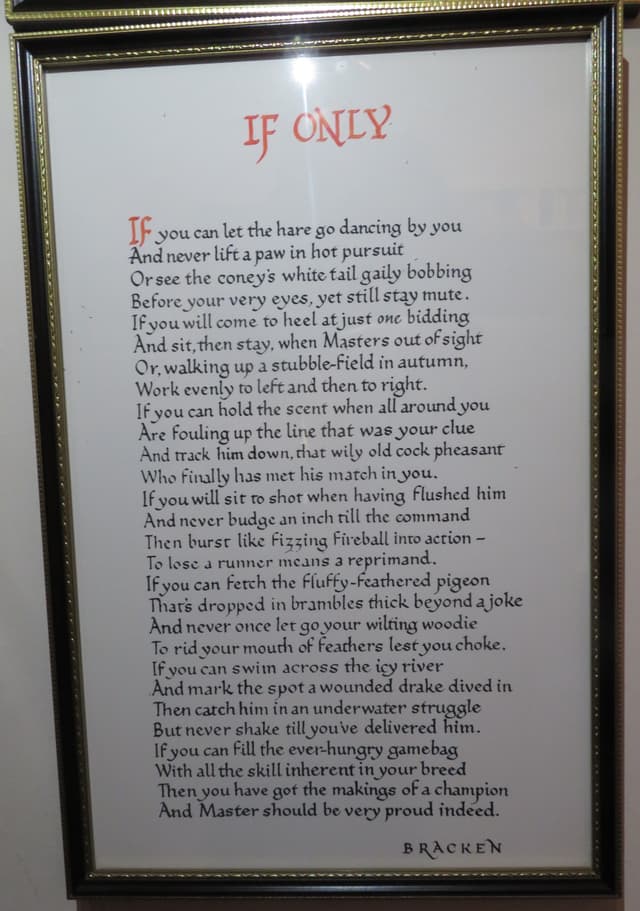 IF ONLY
If you can let the hare go dancing by you
And never lift a paw in hot pursuit
Or see the coney's white tail gaily bobbing
Before your very eyes, yet still stay mute.
If you will come to heel at just one bidding
And sit, then stay, when Masters out of sight
Or, walking up a stubble-field in autumn,
Work evenly to left and then to right.
If you can hold the scent when all around you
Are fouling up the line that was your clue
And track him down, that wily old cock pheasant
Who finally has met his match in you.
If you will sit to shot when having flushed him
And never budge an inch till the command
Then burst like fizzing fireball into action –
To lose a runner means a reprimand.
If you can fetch the fluffy-feathered pigeon
That's dropped in brambles thick beyond a joke
And never once let go your wilting woodie
To rid your mouth of feathers lest you choke.
If you can swim across the icy river
And mark the spot a wounded drake dived in
Then catch him in an underwater struggle
But never shake till you've delivered him.
If you can fill the ever-hungry gamebag
With all the skill inherent in your breed
Then you have got the makings of a champion
And Master should be very proud indeed.
BRACKEN